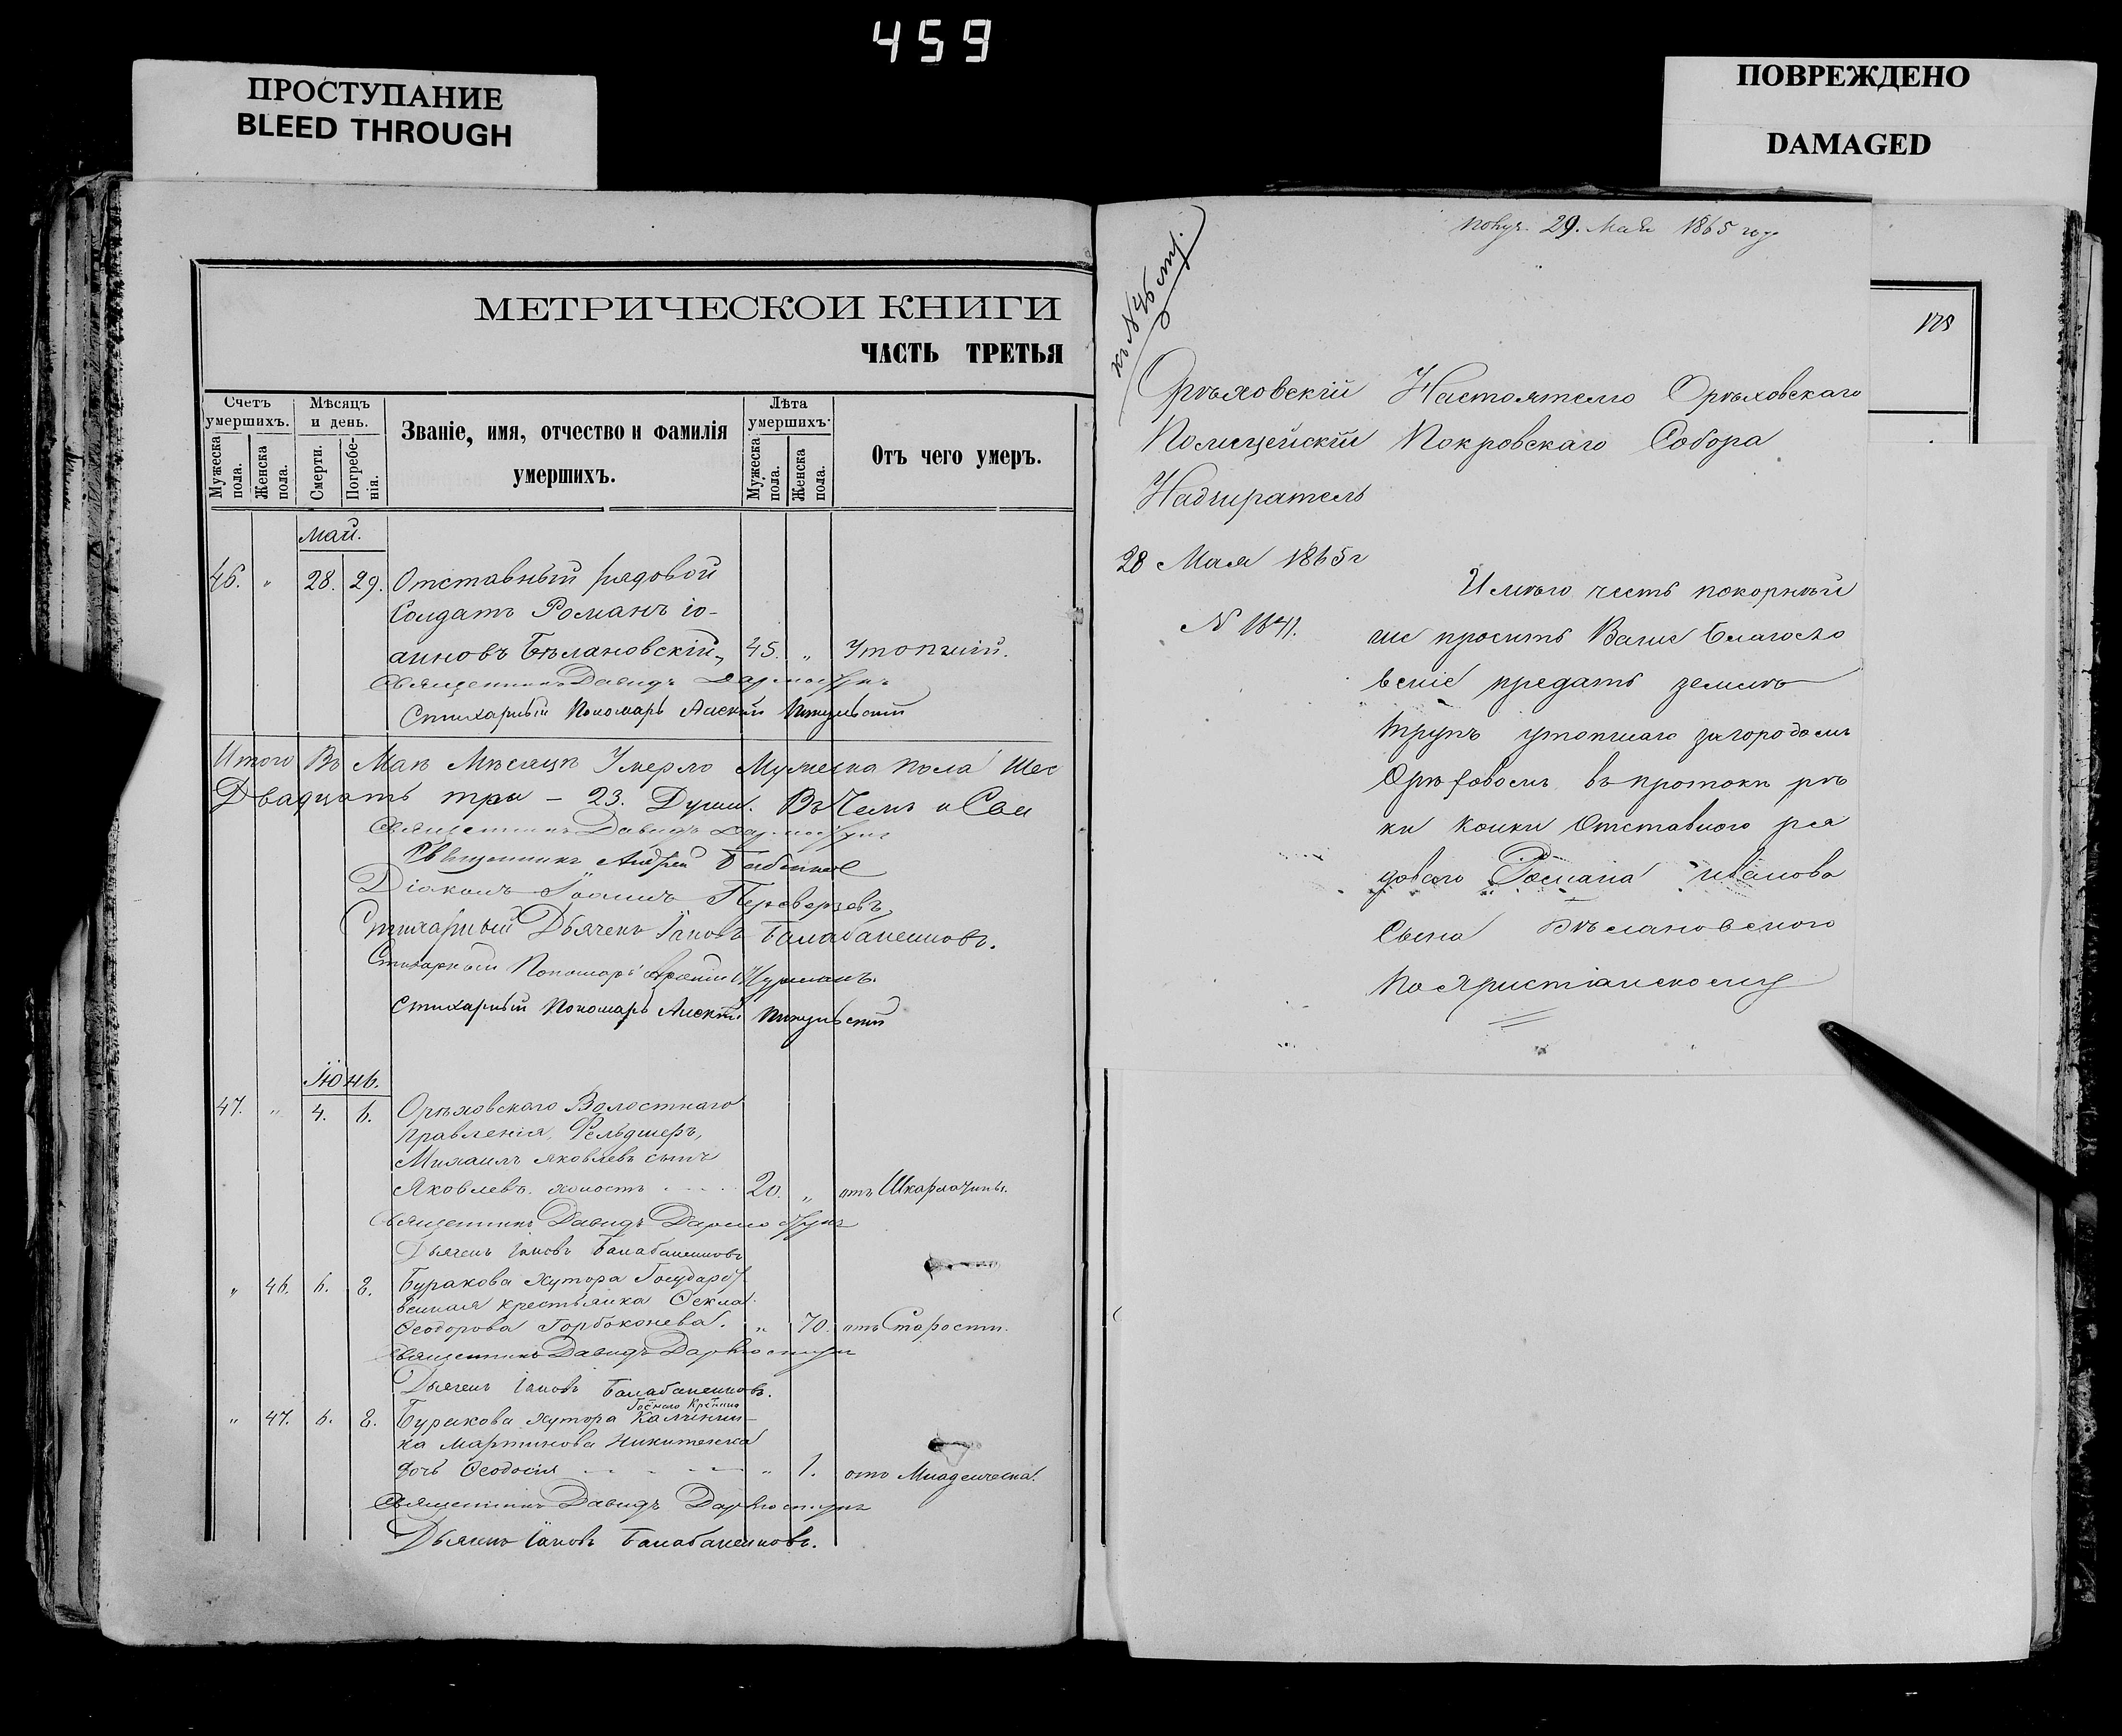 459
ПРОСТУПАНИЕ
BLEED THROUGH
ПОВРЕЖДЕНО
DAMAGED
МЕТРИЧЕСКОЙ КНИГИ
ЧАСТЬ ТРЕТЬЯ
Счетъ умершихъ.
Мужеска пола.
Женска пола.
Мѣсяцъ и день.
Смерти.
Погребенія.
Званіе, имя, отчество и фамилія
умершихъ.
Лѣта умершихъ.
Мужеска пола.
Женска пола.
Отъ чего умеръ.
Май.
46. " 28. 29. Отставный рядовой
Солдатъ Романъ Іо-
анновъ Бѣлановскій, 45. " Утопшій.
Священникъ Давидъ
Стихарный Пономарь Алексій
Итого Въ Маѣ Мѣсяцѣ Умерло Мужеска пола Шес
Двадцать три - 23. Души. Въ Чемъ и Сви
Священникъ Давидъ
Священникъ Андрей
Діаконъ Іоаннъ Переверзевъ
Стихарный Дьячекъ Іаковъ Балабаненковъ.
Стихарный Пономарь
Стихарный Пономарь Алексій
Іюнь.
47. " 4. 6. Орѣховскаго Волостнаго
правленія, Фельдшеръ,
Михаилъ Яковлевъ сынъ
Яковлевъ. холостъ 20. " отъ Шкарлатины.
Священникъ Давидъ
Дьячекъ Іаковъ Балабаненковъ
" 46. 6. 8. Буракова хутора Государст
венная крестьянка Ѳекла
Ѳеодорова Горбоконева. " 70. отъ Старости.
Священникъ Давидъ
Дьячекъ Іаковъ Балабаненковъ.
" 47. 6. 8. Буракова хутора
ка Мартинова Никитенка
дочь Ѳеодосія " 1. отъ Младенческа.
Священникъ Давидъ
Дьячекъ Іаковъ Балабаненковъ.
къ N 46 ст.
Получ. 29. Мая 1865 года
Орѣховскій
Полицейскій
Надзиратель
28 Мая 1865 г
N 1671.
Настоятелю Орѣховскаго
Покровскаго Собора
Имѣю честь покорнѣй
ше просить Ваше Благосло
веніе предать землѣ
трупъ утопшаго за городомъ
Орѣховомъ въ протокѣ рѣ
ки Конки Отставного ря
дового Романа Иванова
Сына Бѣлановского
По христіанскому